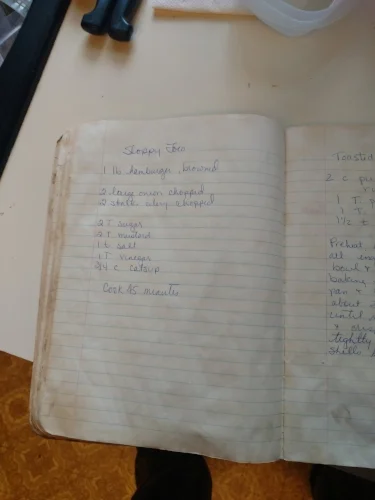 Sloppy Joes
1 lb hamburger, browned
2 large onion chopped
2 stalks celery chopped
2 T. sugar
2 T. mustard
1 t. salt
1 T. vinegar
3/4 c catsup
Cook 45 minutes
Toasted
2 c
1 T. p
1 T.
Preheat
baking
pan &
about
until
tightly